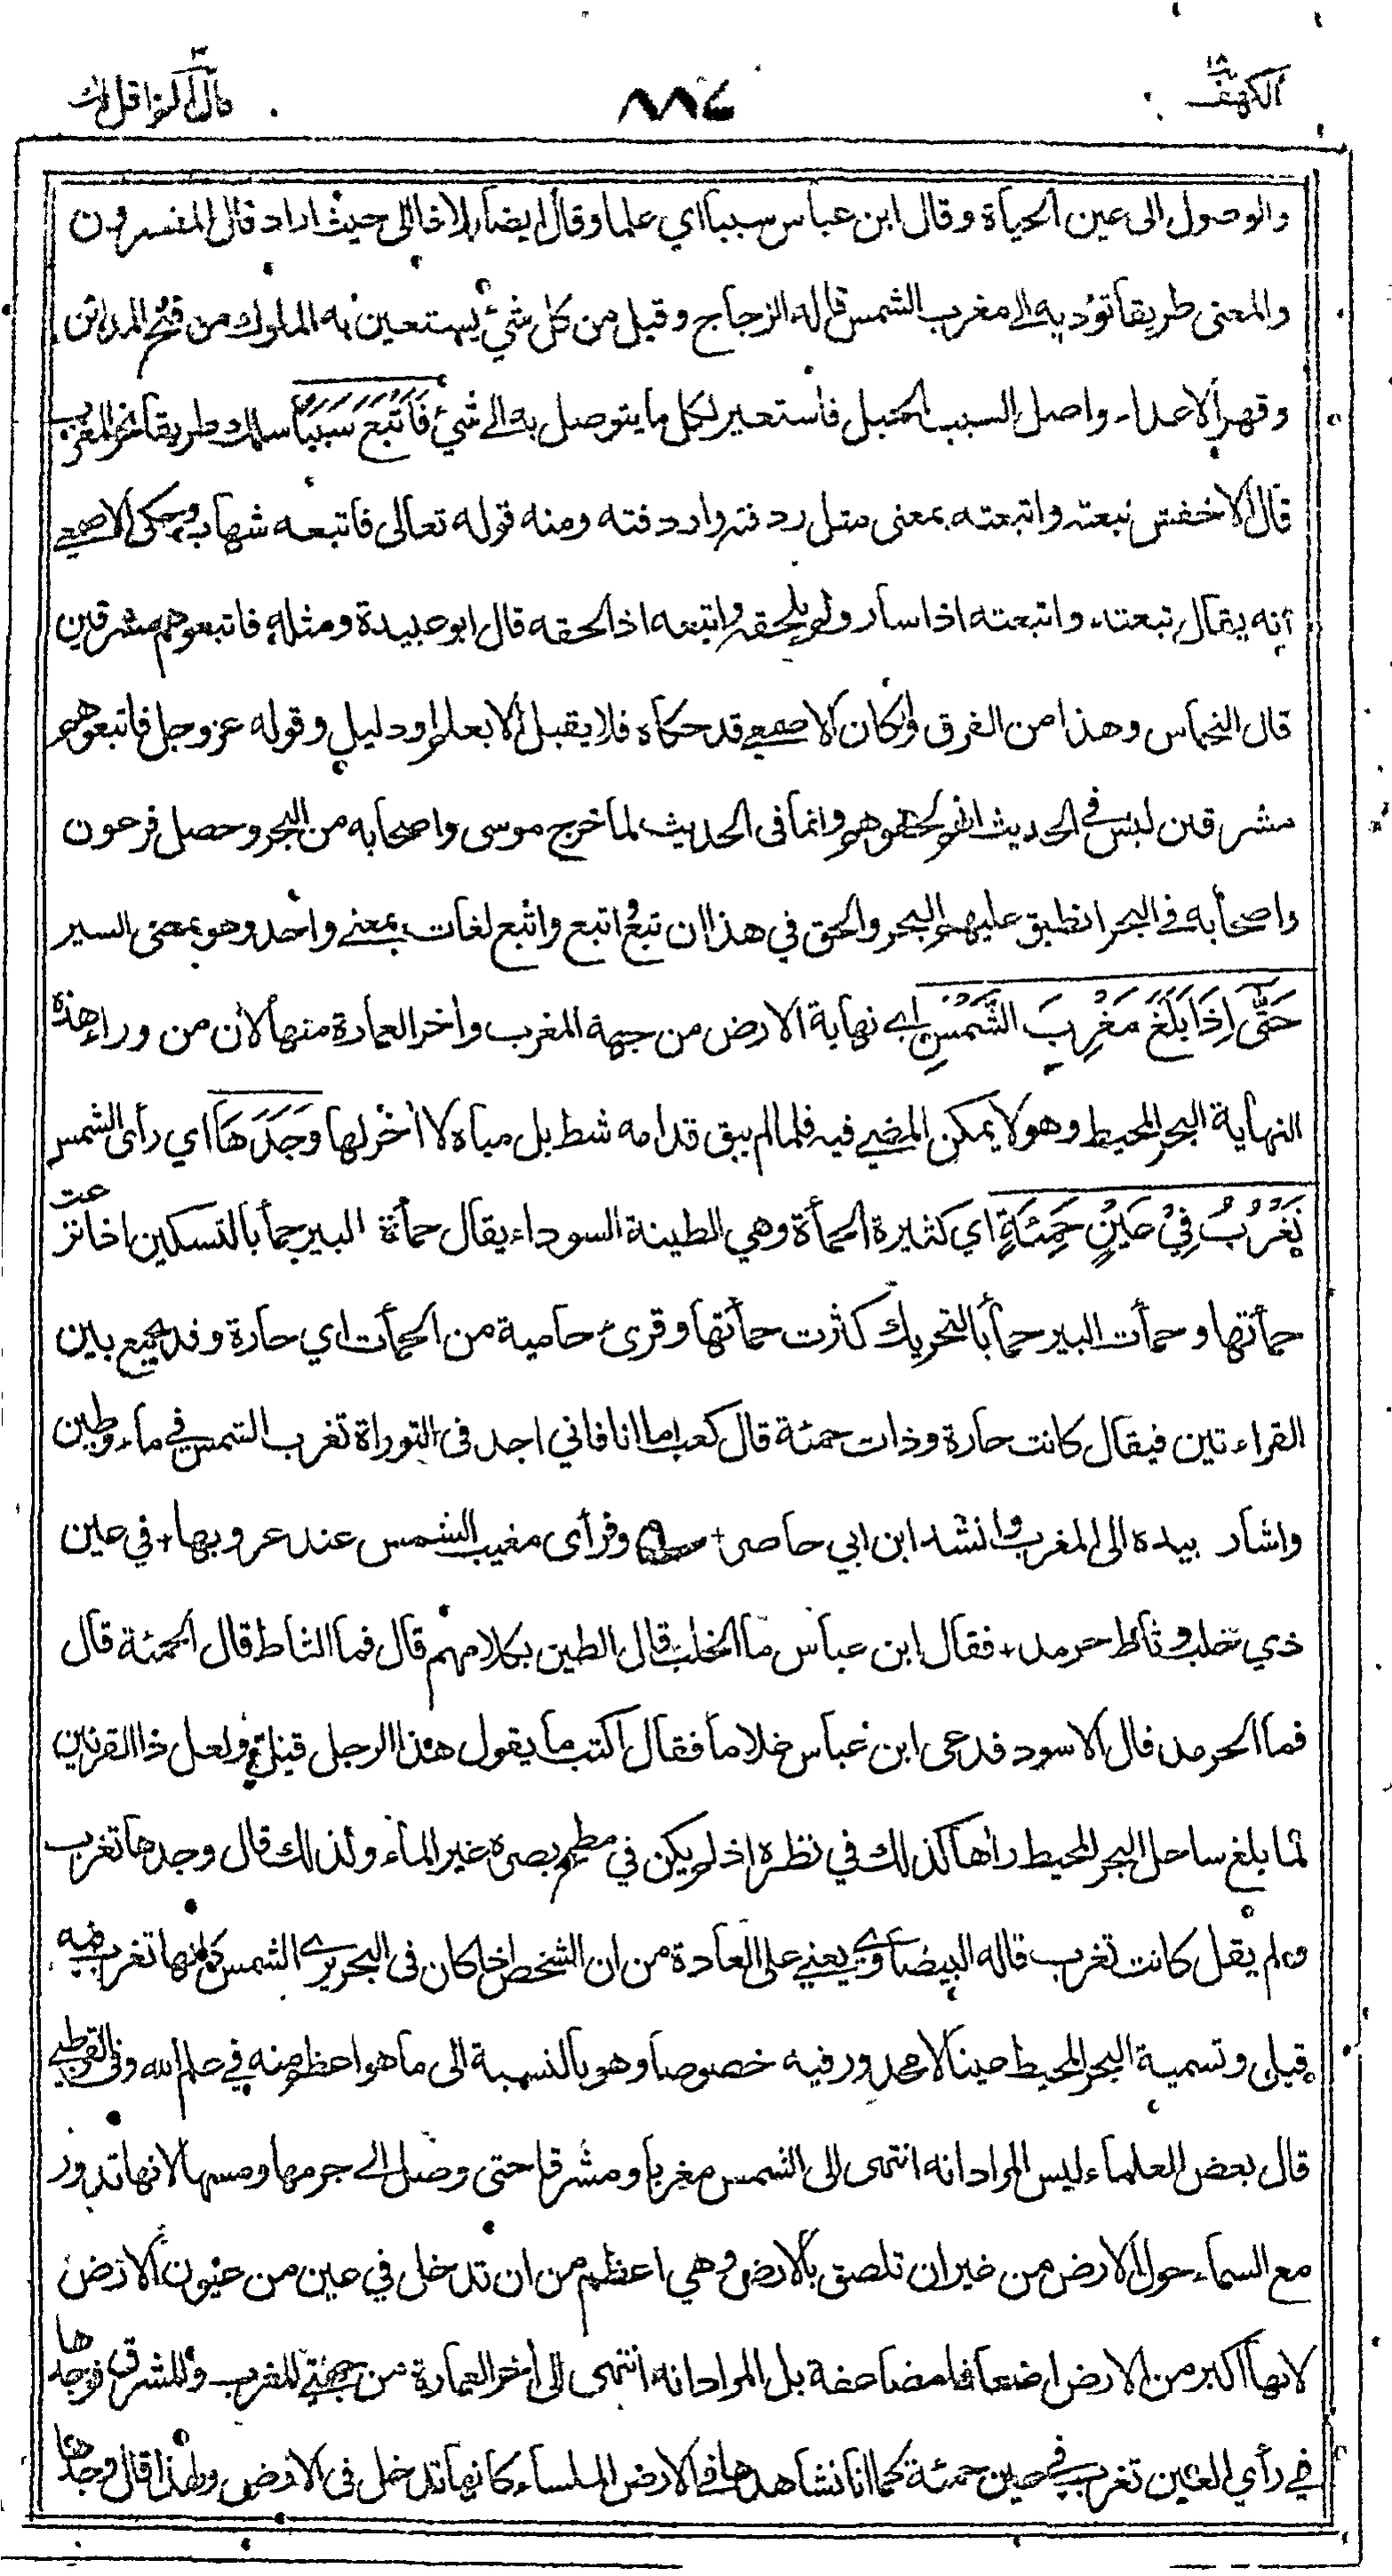 الكهف ١٨
٨٨٤
قال الم اقل لك
والوصول الى عين الحياة وقال ابن عباس سببا اي علما وقال ايضا بلاغا الى حيث اراد قال المفسرون
والمعنى طريقا تؤديه الى مغرب الشمس قاله الزجاج وقيل من كل شيئ يستعين به الملوك من فتح المدائن
وقهر الاعداء واصل السبب الحبل فاستعير لكل ما يتوصل به الى شيئ فَأَتْبَعَ سَبَبًا سلك طريقا نحو المغرب
قال الاخفش تبعته واتبعته بمعنى مثل ردفته واردفته ومنه قوله تعالى فاتبعه شهاب وحكى الاصمعي
انه يقال تبعته واتبعته اذا سار ولم يلحقه واتبعه اذا لحقه قال ابو عبيدة ومثله فاتبعوهم مشرقين
قال النحاس وهذا من الفرق وان كان الاصمعي قد حكاه فلا يقبل الا بعلم او دليل وقوله عز وجل فاتبعوهم
مشرقين ليس في الحديث انهم لحقوهم وانما في الحديث لما خرج موسى واصحابه من البحر وحصل فرعون
واصحابه في البحر انطبق عليهم البحر والحق في هذا ان تبع واتبع واتّبع لغات بمعنى واحد وهو بمعنى السير
حَتّٰى إِذَا بَلَغَ مَغْرِبَ الشَّمْسِ اي نهاية الارض من جهة المغرب واخر العمارة منها لان من وراء هذه
النهاية البحر المحيط وهو لا يمكن المضي فيه فلما لم يبق قدامه شط بل مياه لا اخر لها وَجَدَهَا اي رأى الشمس
تَغْرُبُ فِيْ عَيْنٍ حَمِئَةٍ اي كثيرة الحمأة وهي الطينة السوداء يقال حمأت البير حمأ بالتسكين اذا نزعت
حمأتها وحمأت البير حمأ بالتحريك كثرت حمأتها وقرئ حامية من الحمأت اي حارة وقد يجمع بين
القراءتين فيقال كانت حارة وذات حمئة قال كعب اما انا فاني اجد في التوراة تغرب الشمس في ماء وطين
واشار بيده الى المغرب وانشد ابن ابي حاصر + وفرأى مغيب الشمس عند عروبها + في عين
ذي خلب وثأط حرمد + فقال ابن عباس ما الخلب قال الطين بكلامهم قال فما الثاط قال الحمئة قال
فما الحرمد قال الاسود فدعى ابن عباس غلاما فقال اكتب ما يقول هذا الرجل قيل ولعل ذا القرنين
لما بلغ ساحل البحر المحيط راها كذلك في نظره اذ لم يكن في مطمح بصره غير الماء ولذلك قال وجدها تغرب
ولم يقل كانت تغرب قاله البيضاوي يعني على العادة من ان الشخص اذا كان في البحر يرى الشمس كانها تغرب فيه
قيل وتسمية البحر المحيط عينا لا محدور فيه خصوصا وهو بالنسبة الى ما هو اعظم منه في علم الله وفي القرطبي
قال بعض العلماء ليس المراد انه انتهى الى الشمس مغربا ومشرقا حتى وصل الى جرمها ومسها لانها تدور
مع السماء حول الارض من غير ان تلصق بالارض وهي اعظم من ان تدخل في عين من عيون الارض
لانها اكبر من الارض اضعافا مضاعفة بل المراد انه انتهى الى اخر العمارة من جهة المغرب والمشرق فوجدها
في رأي العين تغرب في عين حمئة كما انا نشاهدها في الارض الملساء كانها تدخل في الارض ولهذا قال وجدها